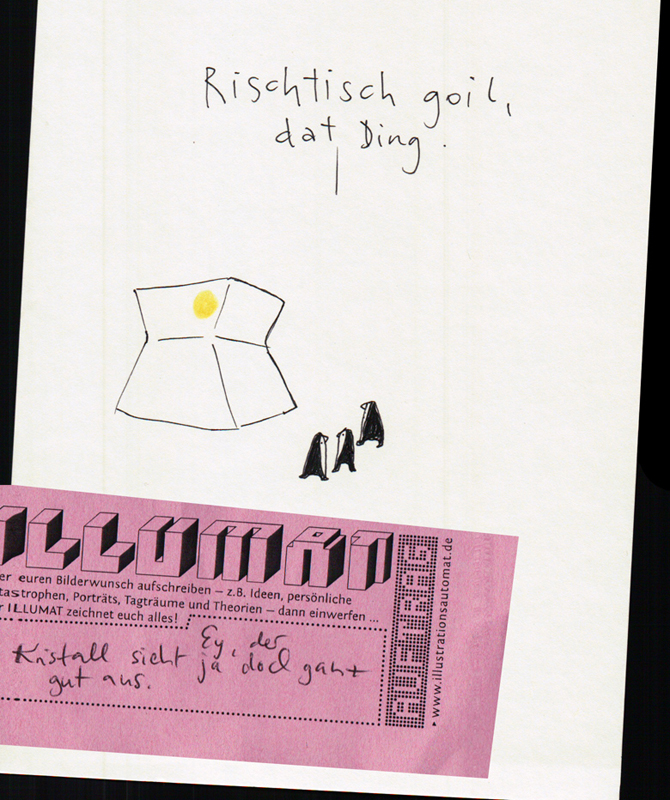 Rischtisch goil,
dat Ding.
ILLUMAT
er euren Bilderwunsch aufschreiben – z.B. Ideen, persönliche
tastrophen, Porträts, Tagträume und Theorien – dann einwerfen ...
r ILLUMAT zeichnet euch alles!
Ey, der
Kristall sieht ja doch ganz
gut aus.
AUFTRAG
▸ www.illustrationsautomat.de